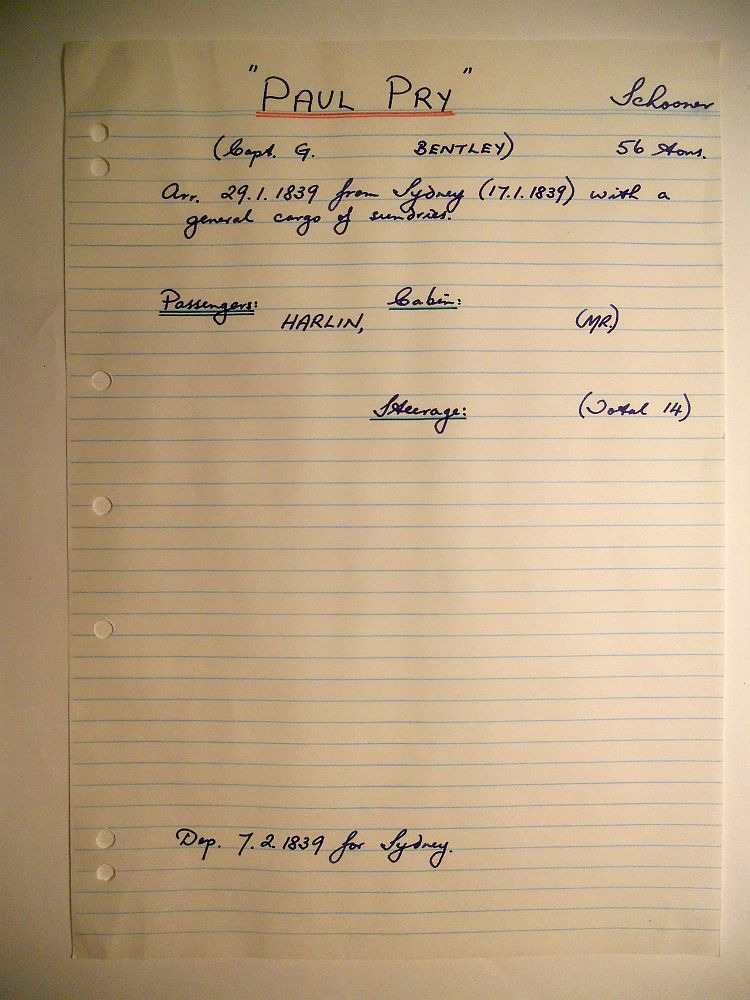 "PAUL PRY" Schooner
(Capt. G. BENTLEY) 56 tons.
Arr. 29.1.1839 from Sydney (17.1.1839) with a
general cargo of sundries.
Passengers: Cabin:
HARLIN, (MR.)
Steerage: (Total 14)
Dep. 7.2.1839 for Sydney.